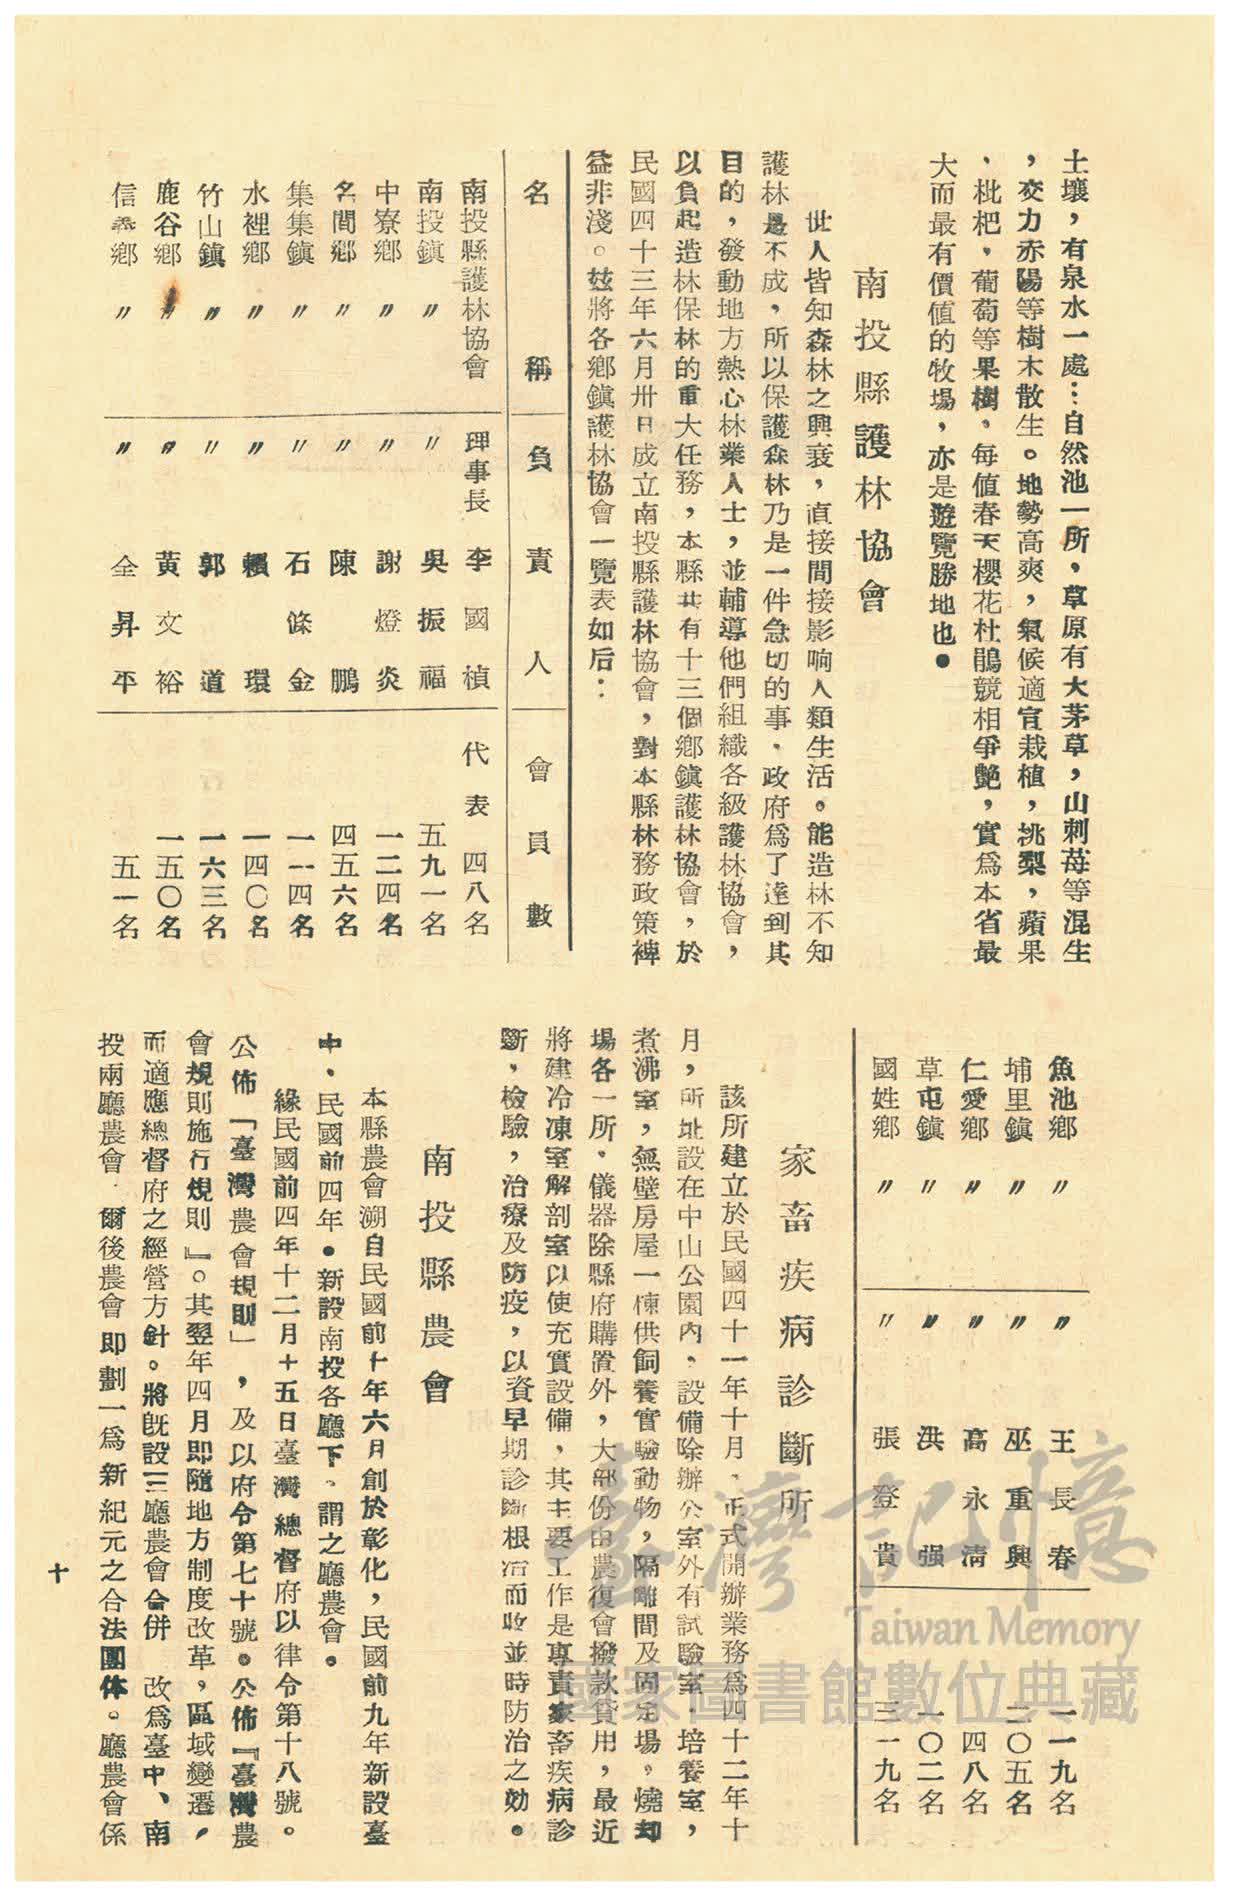 土壤，有泉水一處…自然池一所，草原有大茅草，山刺莓等混生
，交力赤陽等樹木散生。地勢高爽，氣候適宜栽植，挑梨，蘋果
、枇杷，葡萄等果樹，每值春天櫻花杜鵑競相爭艷，實為本省最
大而最有價值的牧場，亦是遊覽勝地也。
南投縣護林協會
世人皆知森林之興衰，直接間接影响人類生活。能造林不知
護林是不成，所以保護森林乃是一件急切的事，政府為了達到其
目的，發動地方熱心林業人士，並輔導他們組織各級護林協會，
以負起造林保林的重大任務，本縣共有十三個鄉鎮護林協會，於
民國四十三年六月卅日成立南投縣護林協會，對本縣林務政策裨
益非淺。玆將各鄉鎮護林協會一覽表如后：
名稱 負責人 會員數
南投縣護林協會 理事長 李國楨 代表 四八名
南投鎮 〃 〃 吳振福 五九一名
中寮鄉 〃 〃 謝燈炎 一二四名
名間鄉 〃 〃 陳鵬 四五六名
集集鎮 〃 〃 石條金 一一四名
水裡鄉 〃 〃 賴環 一四〇名
竹山鎮 〃 〃 郭道 一六三名
鹿谷鄉 〃 〃 黃文裕 一五〇名
信義鄉 〃 〃 全昇平 五一名
魚池鄉 〃 〃 王長春 一一九名
埔里鎮 〃 〃 巫重興 二〇五名
仁愛鄉 〃 〃 高永清 四八名
草屯鎮 〃 〃 洪强 一〇二名
國姓鄉 〃 〃 張登貴 三一九名
家畜疾病診斷所
該所建立於民國四十一年十月，正式開辦業務為四十二年十
月，所址設在中山公園內，設備除辦公室外有試驗室，培養室，
煮沸室，無壁房屋一棟供飼養實驗動物，隔離間及固定場，燒却
場各一所。儀器除縣府購置外，大部份由農復會撥款貸用，最近
將建冷凍室解剖室以使充實設備，其主要工作是專責家畜疾病診
斷，檢驗，治療及防疫，以資早期診斷根治而收並時防治之効。
南投縣農會
本縣農會溯自民國前十年六月創於彰化，民國前九年新設臺
中、民國前四年。新設南投各廳下，謂之廳農會。
緣民國前四年十二月十五日臺灣總督府以律令第十八號。
公佈「臺灣農會規則」，及以府令第七十號。公佈『臺灣農
會規則施行規則』。其翌年四月即隨地方制度改革，區域變遷，
而適應總督府之經營方針。將旣設三廳農會合併 改為臺中、南
投兩廳農會，爾後農會即劃一為新紀元之合法團体。廳農會係
十
臺灣記憶
Taiwan Memory
國家圖書館數位典藏